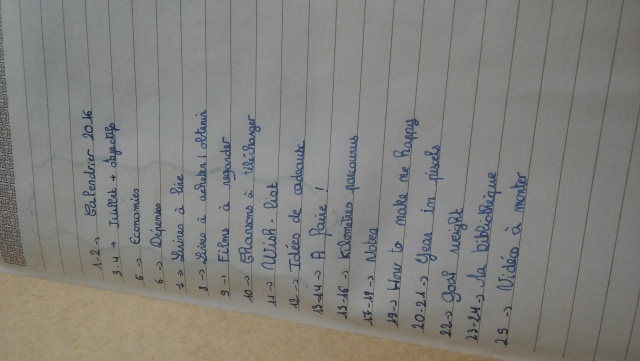 1-2 → Calendrier 2016
3-4 → Juillet + objectifs
5 → Economies
6 → Dépenses
7 → Livres à lire
8 → Livres à acheter / obtenir
9 → Films à regarder
10 → Chansons à télécharger
11 → Wish-list
12 → Idées de cadeaux
13-14 → A faire !
15-16 → Kilomètres parcourus
17-18 → Notes
19 → How to make me happy
20-21 → Year in pixels
22 → goal weight
23-24 → la bibliothèque
25 → Vidéos à monter